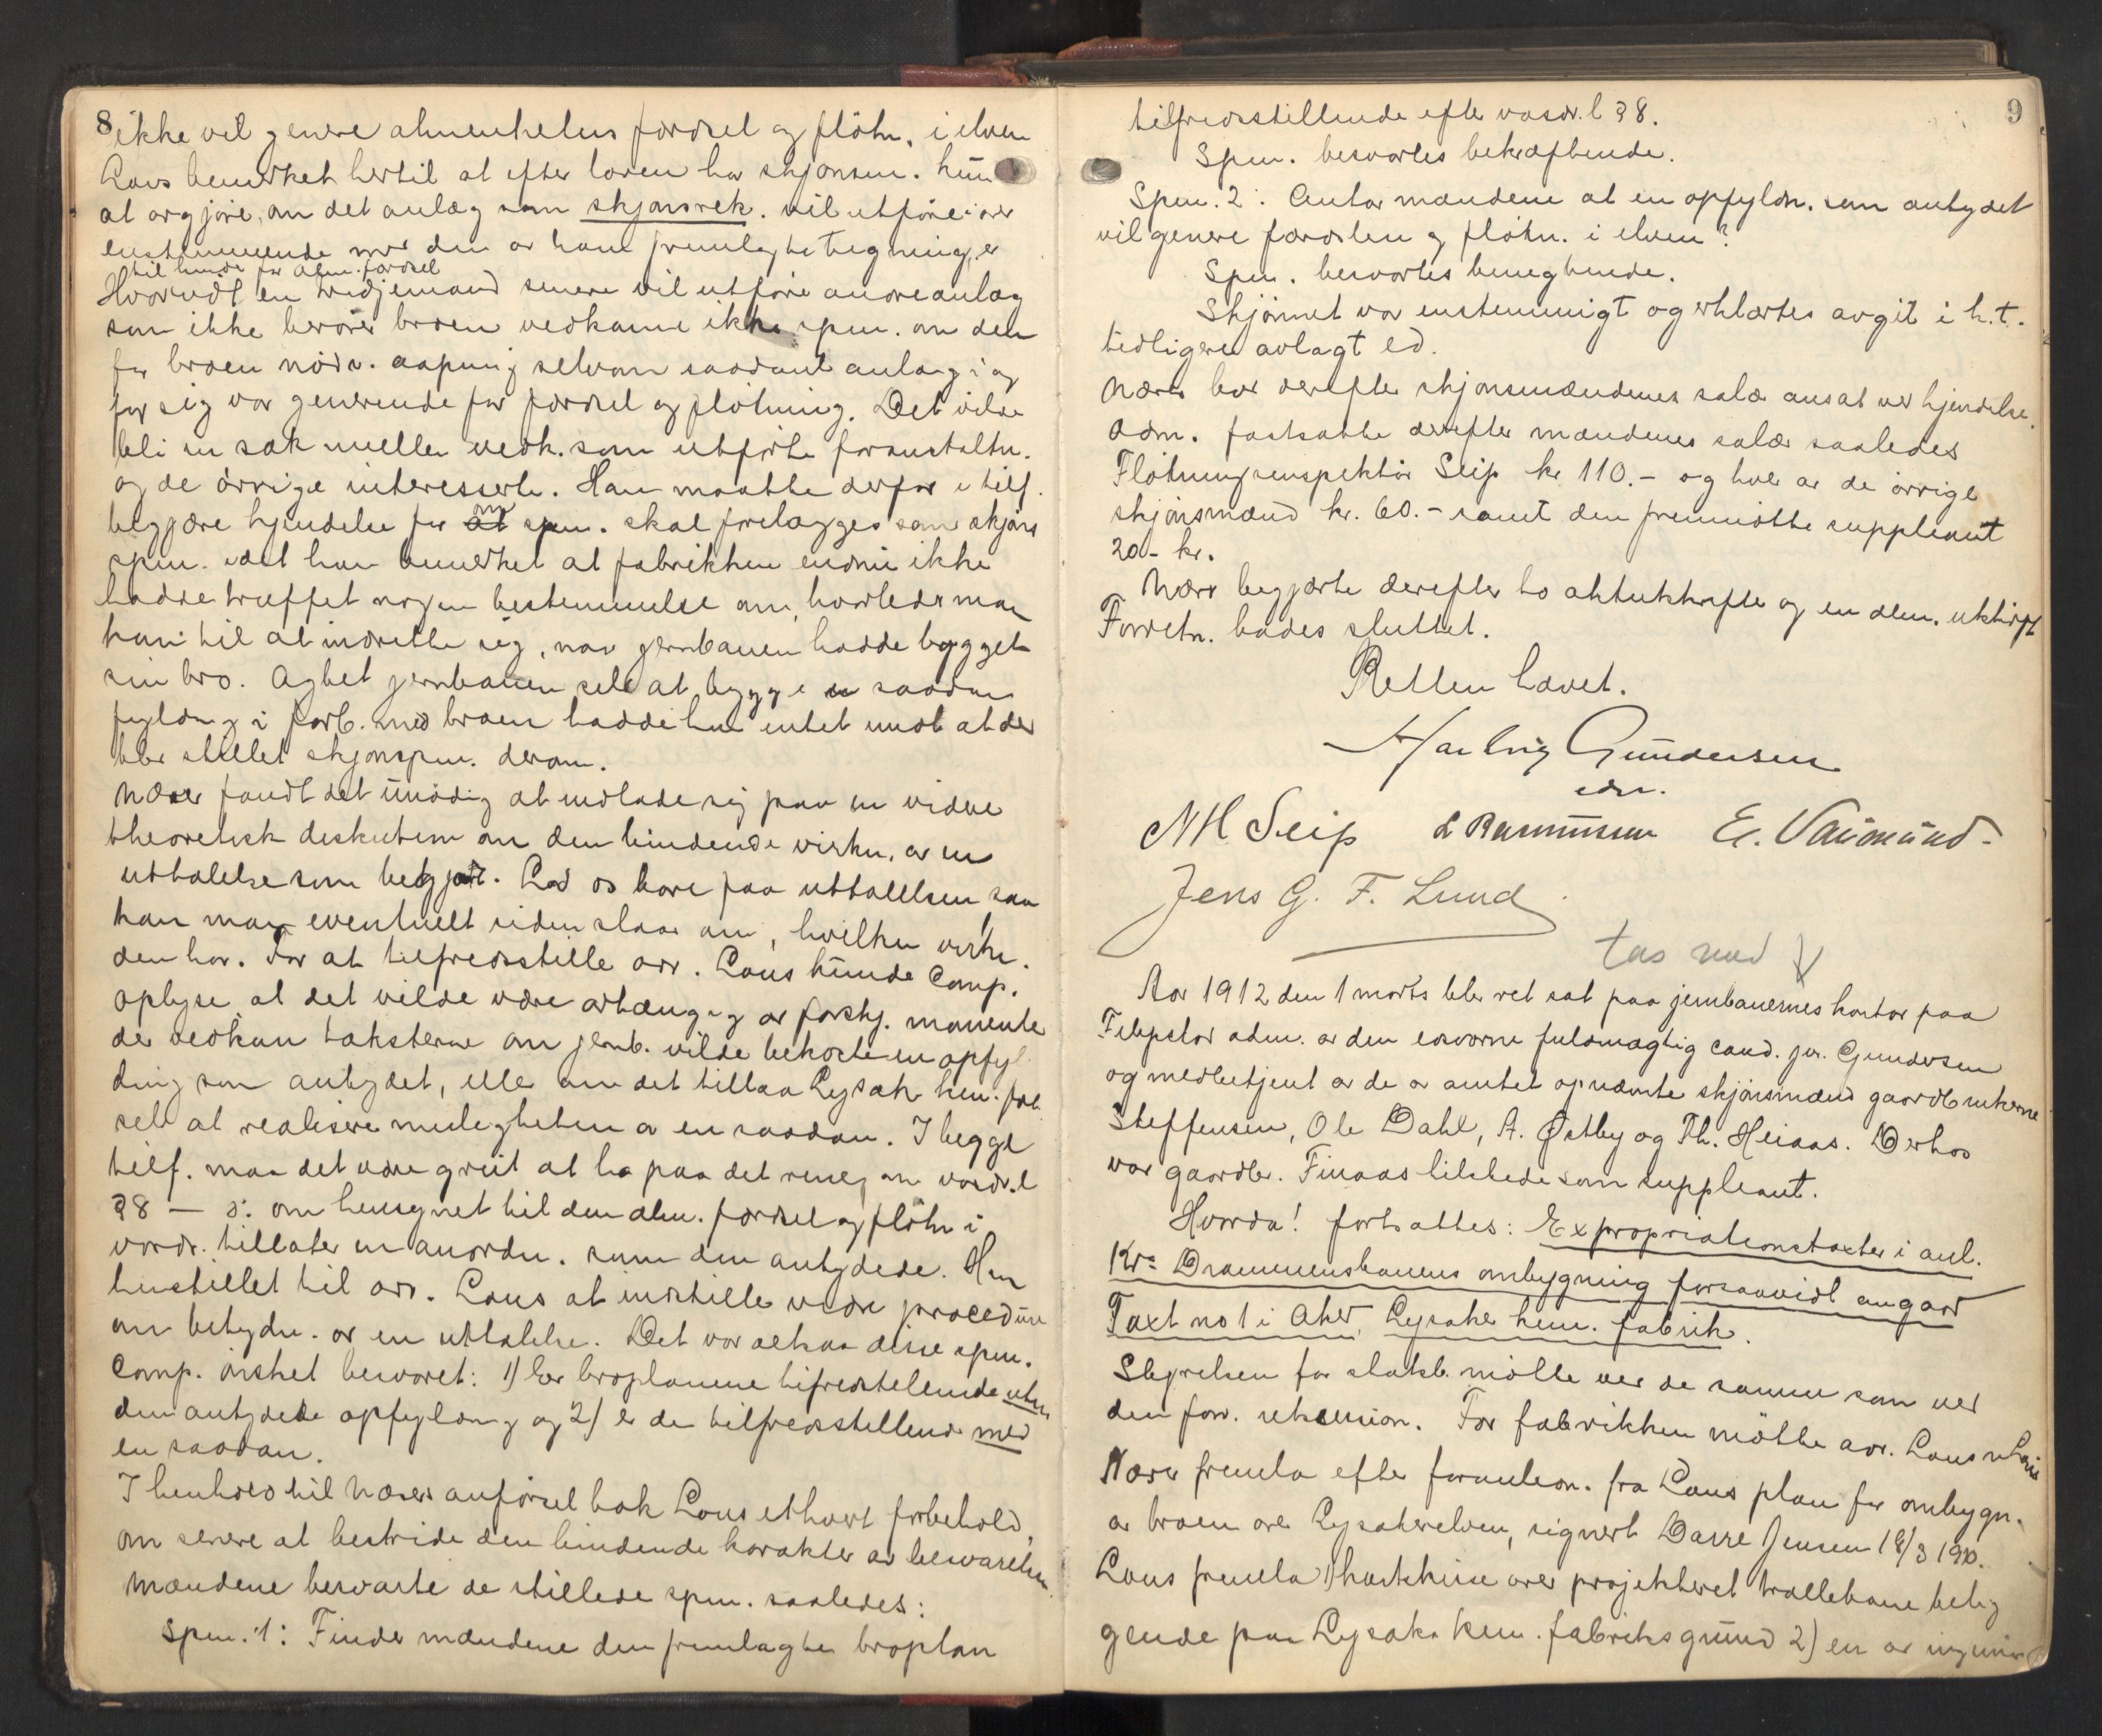 8
ikke vil genere almenhetens færdsel og flötn. i elven
Lous bemerket hertil at efter loven har skjönsm. kun
at avgjöre, om det anlæg som skjönsrek. vil utföre i over
ensstemmende med den av ham fremlagte tegning, er
til hinder for alm. færdsel
Hvorvidt en tredjemand senere vil utföre andre anlæg
som ikke berörer broen vedkomme ikke spm. om den
for broen nödv. aapning selvom saadant anlæg i og
for sig var generende for færdsel og flötning. Det vilde
bli en sak mellem vedk. som utförte foranstaltn.
og de övrige interesserte. Han maatte derfor i tilf.
begjære kjendelse for om spm. skal forelægges som skjöns
spm. idet han bemerket at fabrikken endnu ikke
hadde truffet nogen bestemmelse om, hvorledes man
kom til at indrette sig, naar jernbanen hadde bygget
sin bro. Agtet jernbanen selv at bygge en saadan
fyldning i forb. med broen hadde han intet imot at der
blev stillet skjönsspm. derom.
Næser fandt det unödig at indlade sig paa en videre
theoretisk diskution om den bindende virkn. av en
uttalelse som begjært. Lad os höre paa uttalelsen saa
kan man eventuelt siden slaas om, hvilken virkn.
den har. For at tilfredsstille adv. Lous kunde Comp.
oplyse at det vilde være avhængig av forskj. momenter
der vedkom taksterne om jernb. vilde bekoste en opfyl
ding som antydet, eller om det tillaa Lysaker kem. fab.
selv at realisere muligheten av en saadan. I begge
tilf. maa det være greit at ha paa det rene, om vasdr.l
§ 38 — ɔ: om hensynet til den alm. færdsel og flötn i
vasdr. tillater en anordn. som den antydede. Han
henstillet til adv. Lous at indstille videre procedure
om betydn. av en uttalelse. Det var altsaa disse spm.
Comp. önsket besvaret: 1) Er broplanene tilfredsstillende uten
den antydede opfyldning og 2) er de tilfredsstillende med
en saadan.
I henhold til Næsers anförsel tok Lous ethvert forbehold,
om senere at bestride den bindende karakter av besvarelsen.
Mændene besvarte de stillede spm. saaledes:
Spm. 1: Finder mændene den fremlagte broplan
9
tilfredsstillende efter vasdr.l § 38.
Spm. besvartes bekræftende.
Spm. 2: Antar mændene at en opfyldn. som antydet
vil genere færdslen og flötn. i elven?
Spm. besvartes benegtende.
Skjönnet var enstemmigt og erklærtes avgit i h.t.
tidligere avlagt ed.
Næser bad derefter skjönsmændenes salær ansat ved kjendelse.
Adm. fastsatte derefter mændenes salær saaledes
Flötningsinspektör Seip kr 110.- og hver av de övrige
skjönsmænd kr. 60.- samt den fremmötte suppleant
20- kr.
Næser begjærte derefter to aktutskrifter og en alm. utskrift
Forretn. bades sluttet.
Retten hævet.
Hartvig Gundersen
edsv.
N H. Seip L Rasmussen Er. Vaumund.
Jens G. F. Lund
tas med
Aar 1912 den 1 marts blev ret sat paa jernbanernes kontor paa
Filipstad adm. av den edsvorne fuldmægtig cand. jur. Gundersen
og medbetjent av de av amtet opnævnte skjönsmænd gaardbrukerne
Steffensen, Ole Dahl, A. Østby og Th. Heiaas. Derhos
var gaardbr. Finaas tilstede som suppleant.
Hvorda! fortsattes: Expropriationstaxter i anl.
Kr.a Drammensbanens ombygning forsaavidt angaar
Taxt no 1 i Aker, Lysaker kem. fabrik.
Styrelsen for statsb. mötte ved de samme som ved
den forr. seksession. For fabrikken mötte adv. Lous
Næser fremla efter foranledn. fra Lous plan for ombygn.
av broen over Lysakerelven, signert Darre Jensen 18/3 1910.
Lous fremla 1) kartskisse over projektert trallebane belig
gende paa Lysaker kem. fabriks grund 2) en av ingeniör